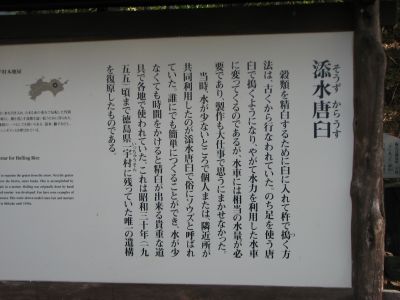 添水唐臼
そうず からうす
穀類を精白するために臼に入れて杵で搗く方
法は、古くから行なわれていた。のち足を使う唐
臼で搗くようになり、やがて水力を利用した水車
に変ってくるのであるが、水車には相当の水量が必
要であり、製作も大仕事で思うにまかせなかった。
当時、水が少ないところで個人または、隣近所が
共同利用したのが添水唐臼で俗にソウズと呼ばれ
ていた。誰にでも簡単につくることができ、水が少
なくても時間をかけると精白が出来る貴重な道
具で各地で使われていた。これは昭和三十年(一九
五五)頃まで徳島県一宇村に残っていた唯一の遺構
を復原したものである。
ear for Hulling Rice